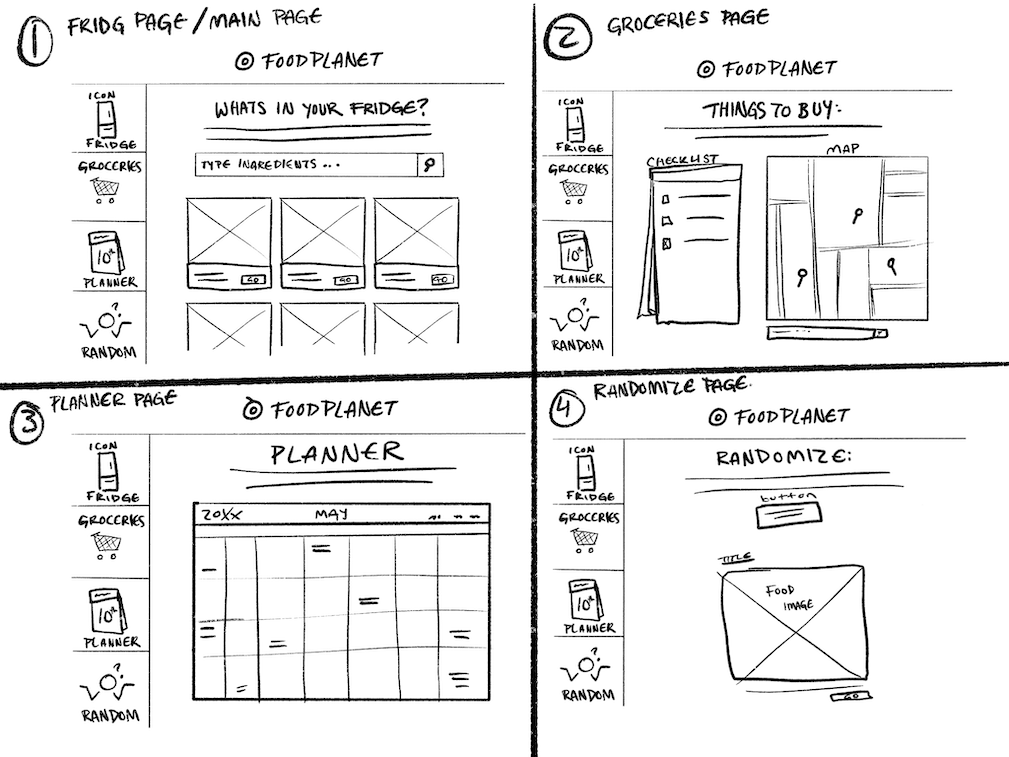 1 FRIDG PAGE / MAIN PAGE
FOODPLANET
ICON
FRIDGE
GROCERIES
10th
PLANNER
?
RANDOM
WHATS IN YOUR FRIDGE?
TYPE INGREDIENTS ...
GO GO GO
2 GROCERIES PAGE
FOODPLANET
ICON
FRIDGE
GROCERIES
10th
PLANNER
?
RANDOM
THINGS TO BUY:
CHECKLIST
MAP
3 PLANNER PAGE
FOODPLANET
ICON
FRIDGE
GROCERIES
10th
PLANNER
?
RANDOM
PLANNER
20XX MAY
4 RANDOMIZE PAGE.
FOODPLANET
ICON
FRIDGE
GROCERIES
10th
PLANNER
?
RANDOM
RANDOMIZE:
button
TITLE
FOOD
IMAGE
GO